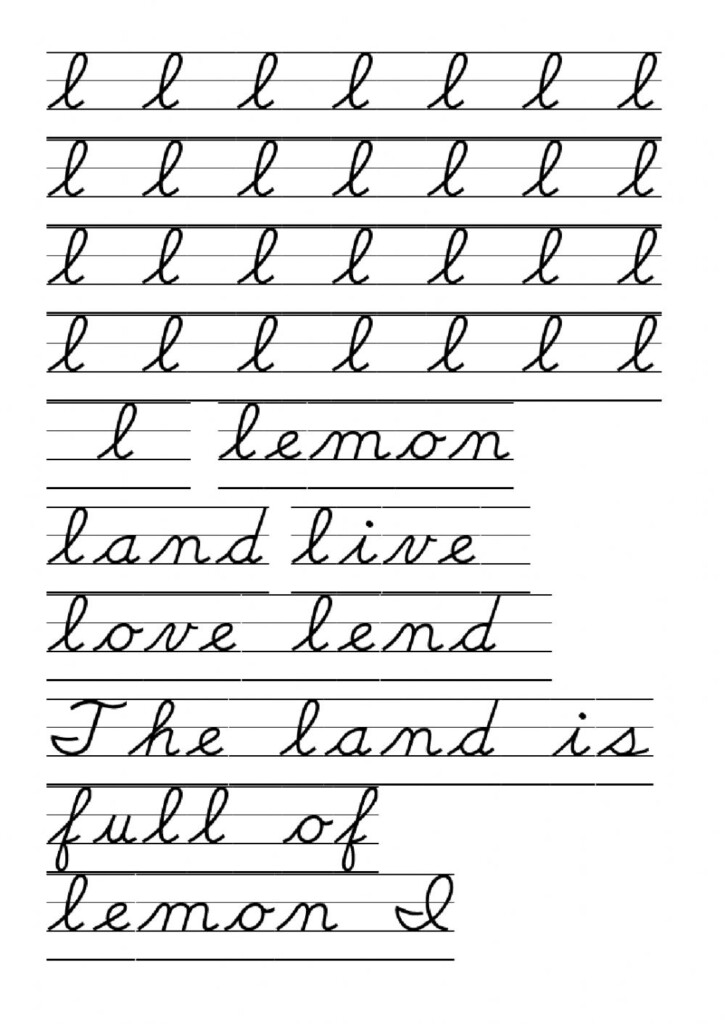 l l l l l l l
l l l l l l l
l l l l l l l
l l l l l l l
l lemon
land live
love lend
The land is
full of
lemon I